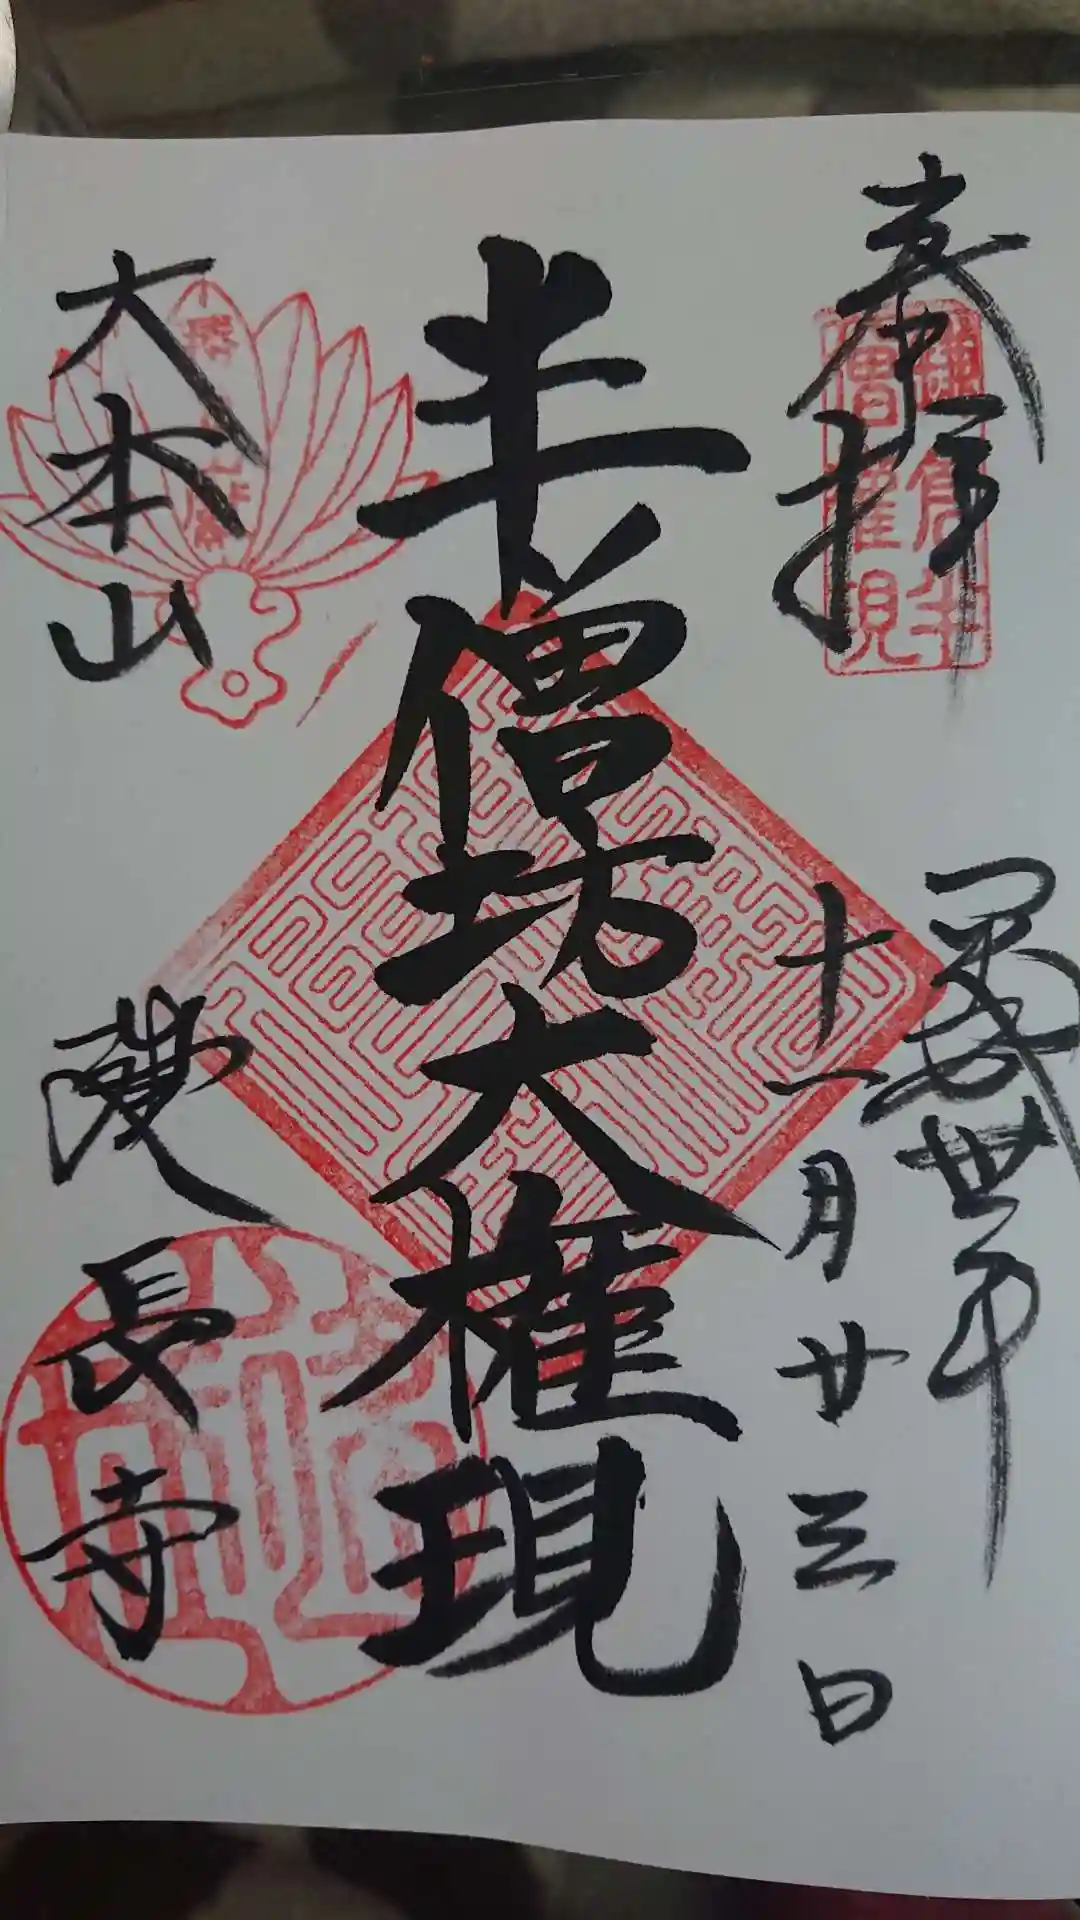 奉拝
平成丗年
十一月廿三日
鎌倉半
僧坊権現
半僧坊大権現
大本山
建長寺